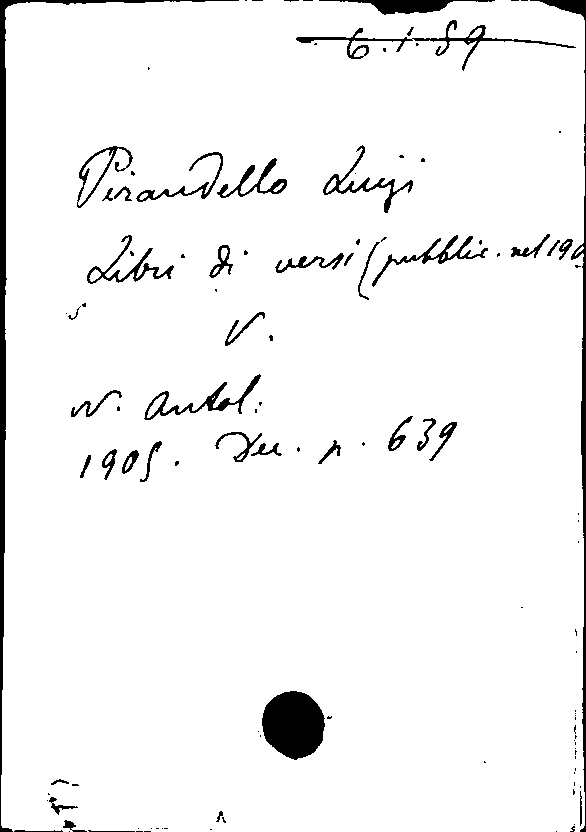 6.1.59
Pirandello Luigi
Libri di versi (pubblic. nel 190
5
V.
N. Antol.
1905. Dec. p. 639